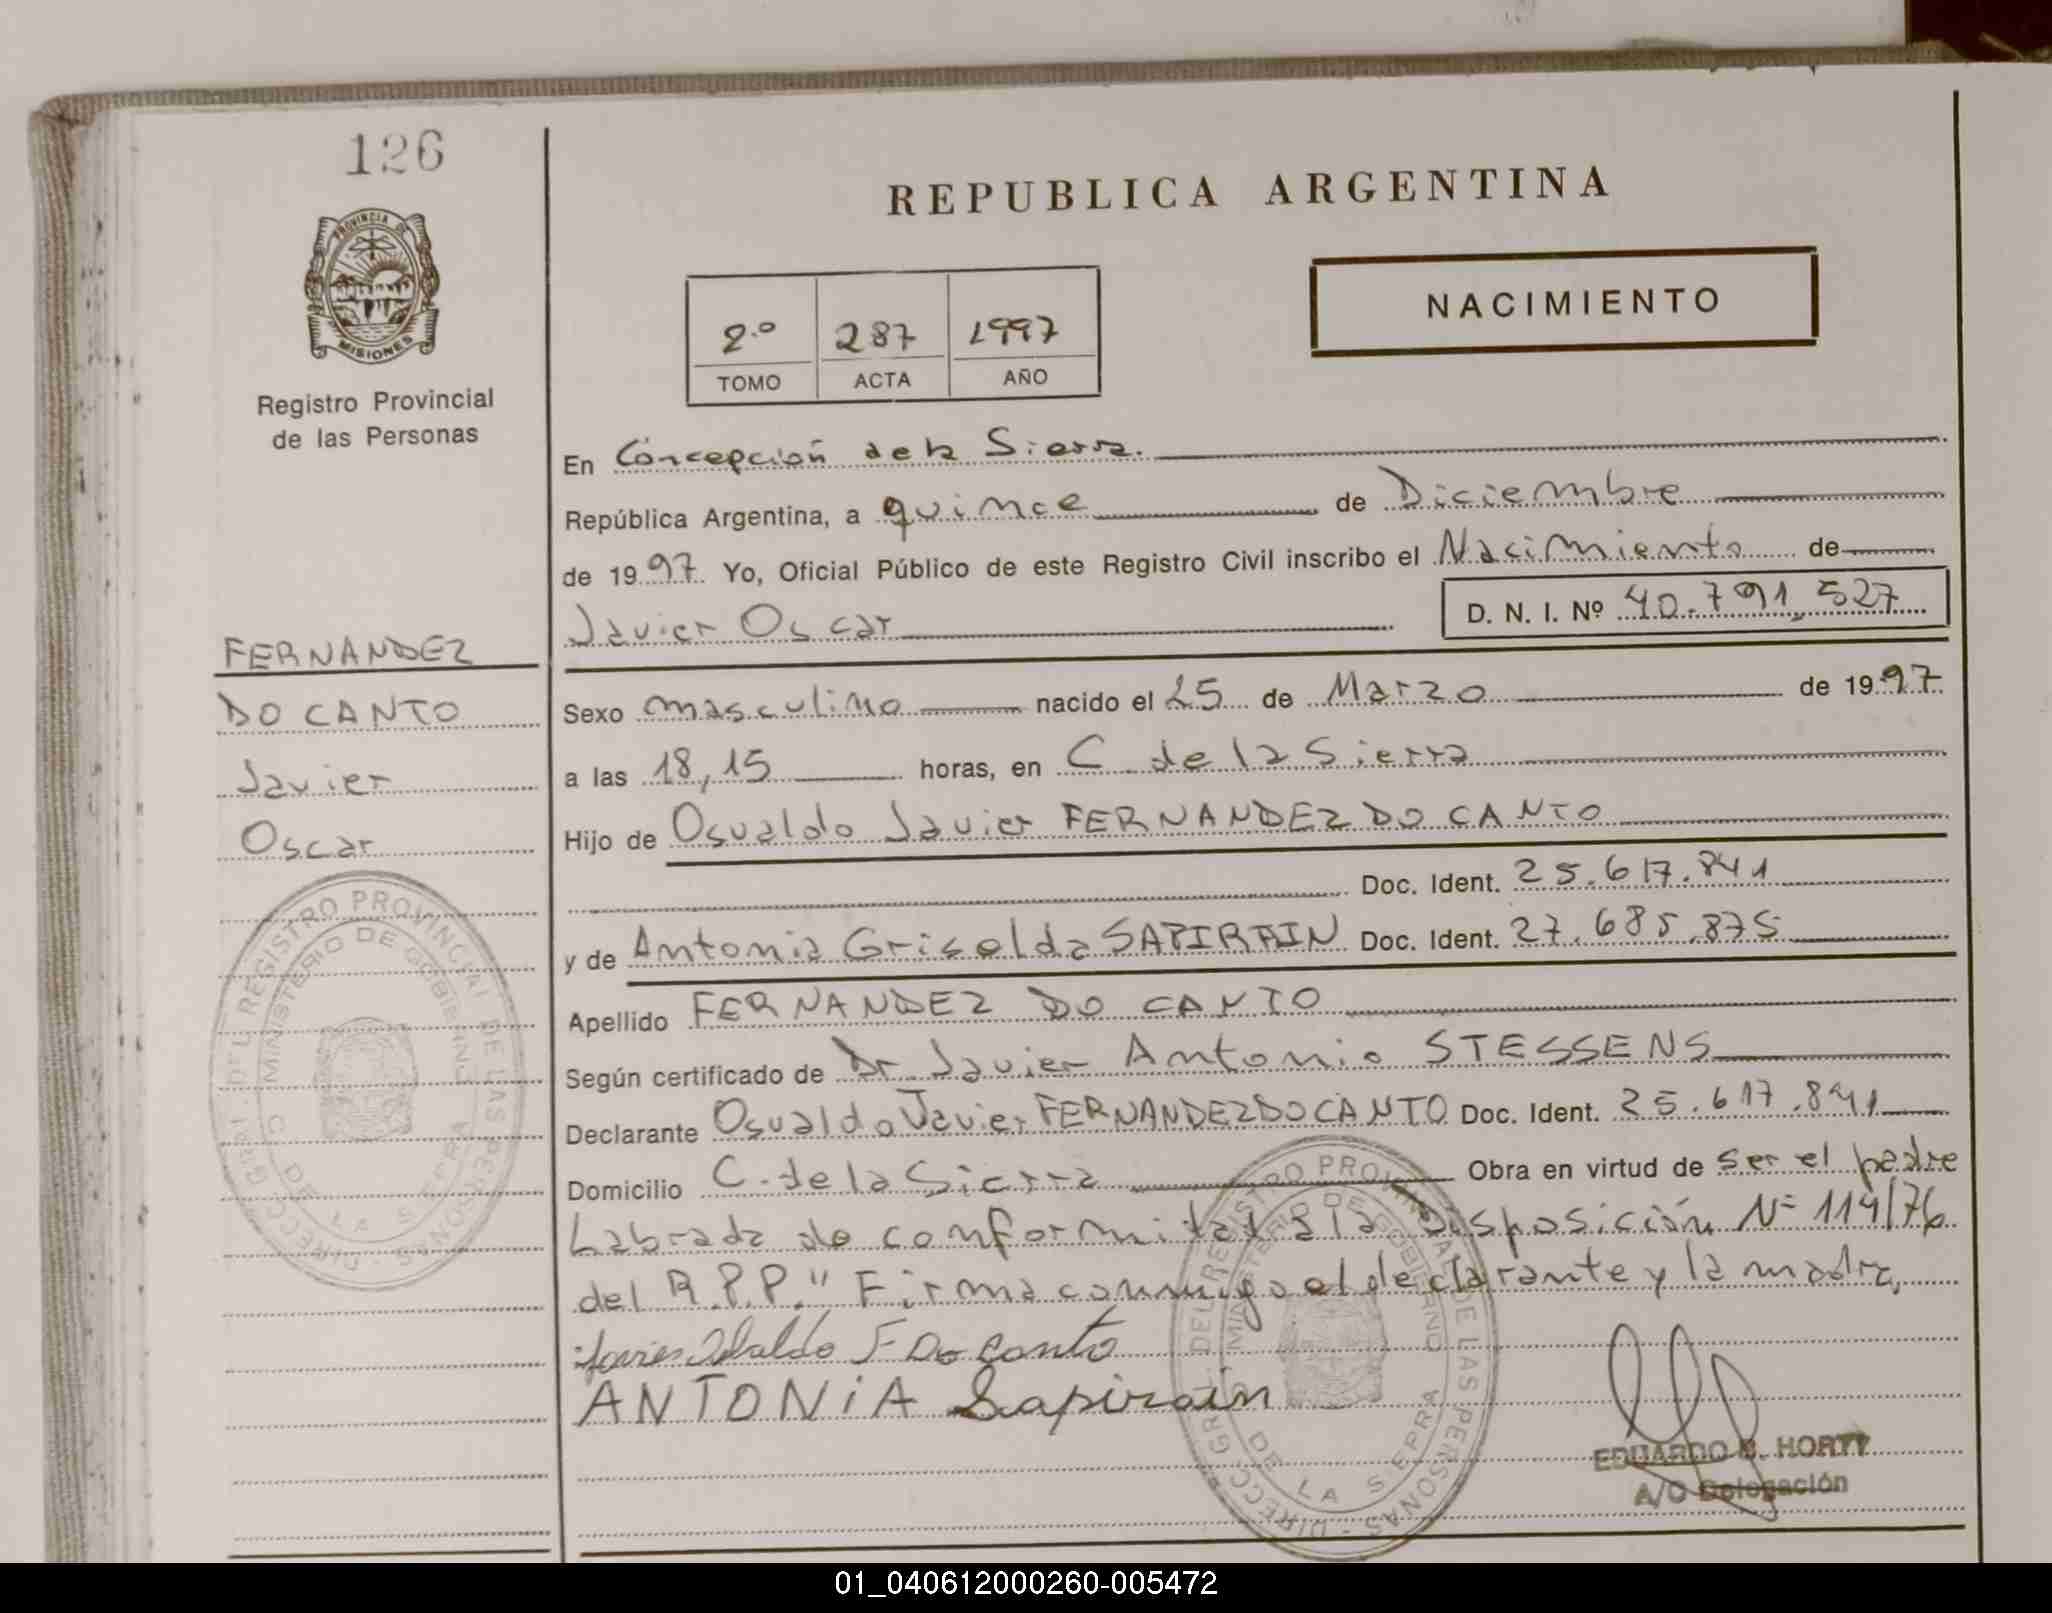 126
REPUBLICA ARGENTINA
PROVINCIA DE
MISIONES
Registro Provincial
de las Personas
NACIMIENTO
2.º 287 1997
TOMO ACTA AÑO
En Concepción de la Sierra.
República Argentina, a quince de Diciembre
de 1997. Yo, Oficial Público de este Registro Civil inscribo el Nacimiento de
Javier Oscar D. N. I. Nº 40.791.527
FERNANDEZ
DO CANTO
Javier
Oscar
Sexo masculino nacido el 25 de Marzo de 1997.
a las 18,15 horas, en C. de la Sierra
Hijo de Osvaldo Javier FERNANDEZ DO CANTO
Doc. Ident. 25.617.841
y de Antonia Griselda SAPIRAIN Doc. Ident. 27.685.875
Apellido FERNANDEZ DO CANTO
Según certificado de Dr. Javier Antonio STESSENS
Declarante Osvaldo Javier FERNANDEZ DO CANTO Doc. Ident. 25.617.841
Domicilio C. de la Sierra Obra en virtud de ser el padre
Labrada de conformidad a la Disposición Nº 114/76
del R.P.P." Firma conmigo el declarante y la madre,
F Do Canto
ANTONIA Sapirain
EDUARDO HORTT
A/C Delegación
DIRECC. GRAL. DEL REGISTRO PROVINCIAL DE LAS PERSONAS
MINISTERIO DE GOBIERNO
C. DE LA SIERRA
DIRECC. GRAL. DEL REGISTRO PROVINCIAL DE LAS PERSONAS
MINISTERIO DE GOBIERNO
C. DE LA SIERRA
01_040612000260-005472